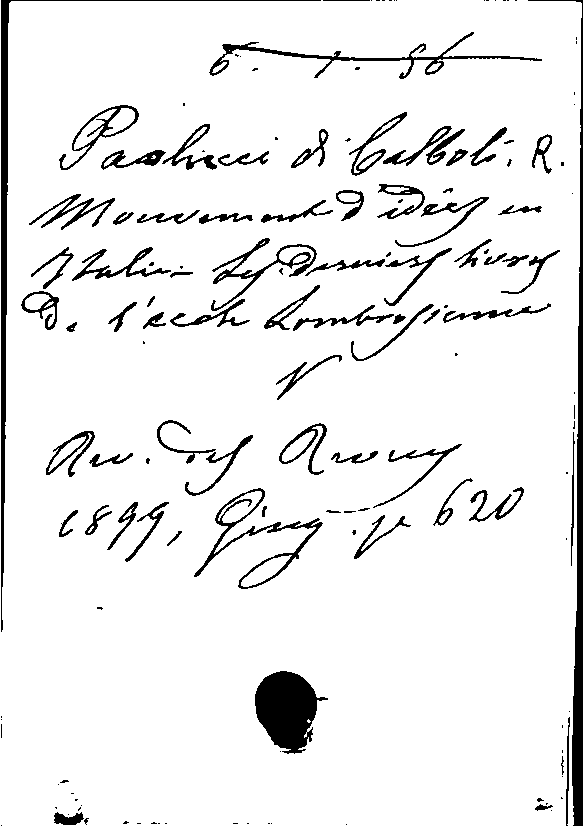 6. 1. 56
Paolucci di Calboli, R.
Mouvement d'idées en
Italie - Les derniers livres
de l'école Lombrosienne
V
Rev. des Revues
1899, Giug. p. 620